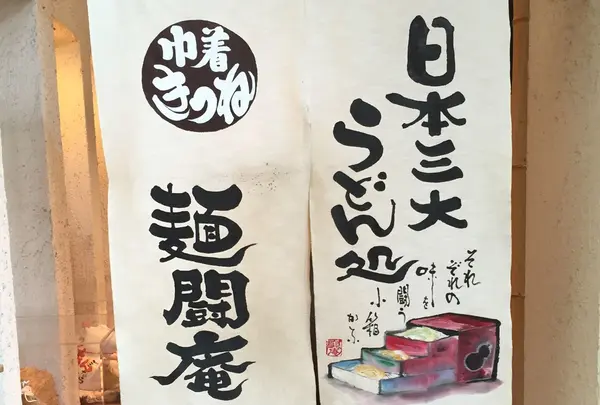 日本三大
うどん処
それ
ぞれの
味しを
闘う
小箱
かな
巾着
きつね
麺闘庵